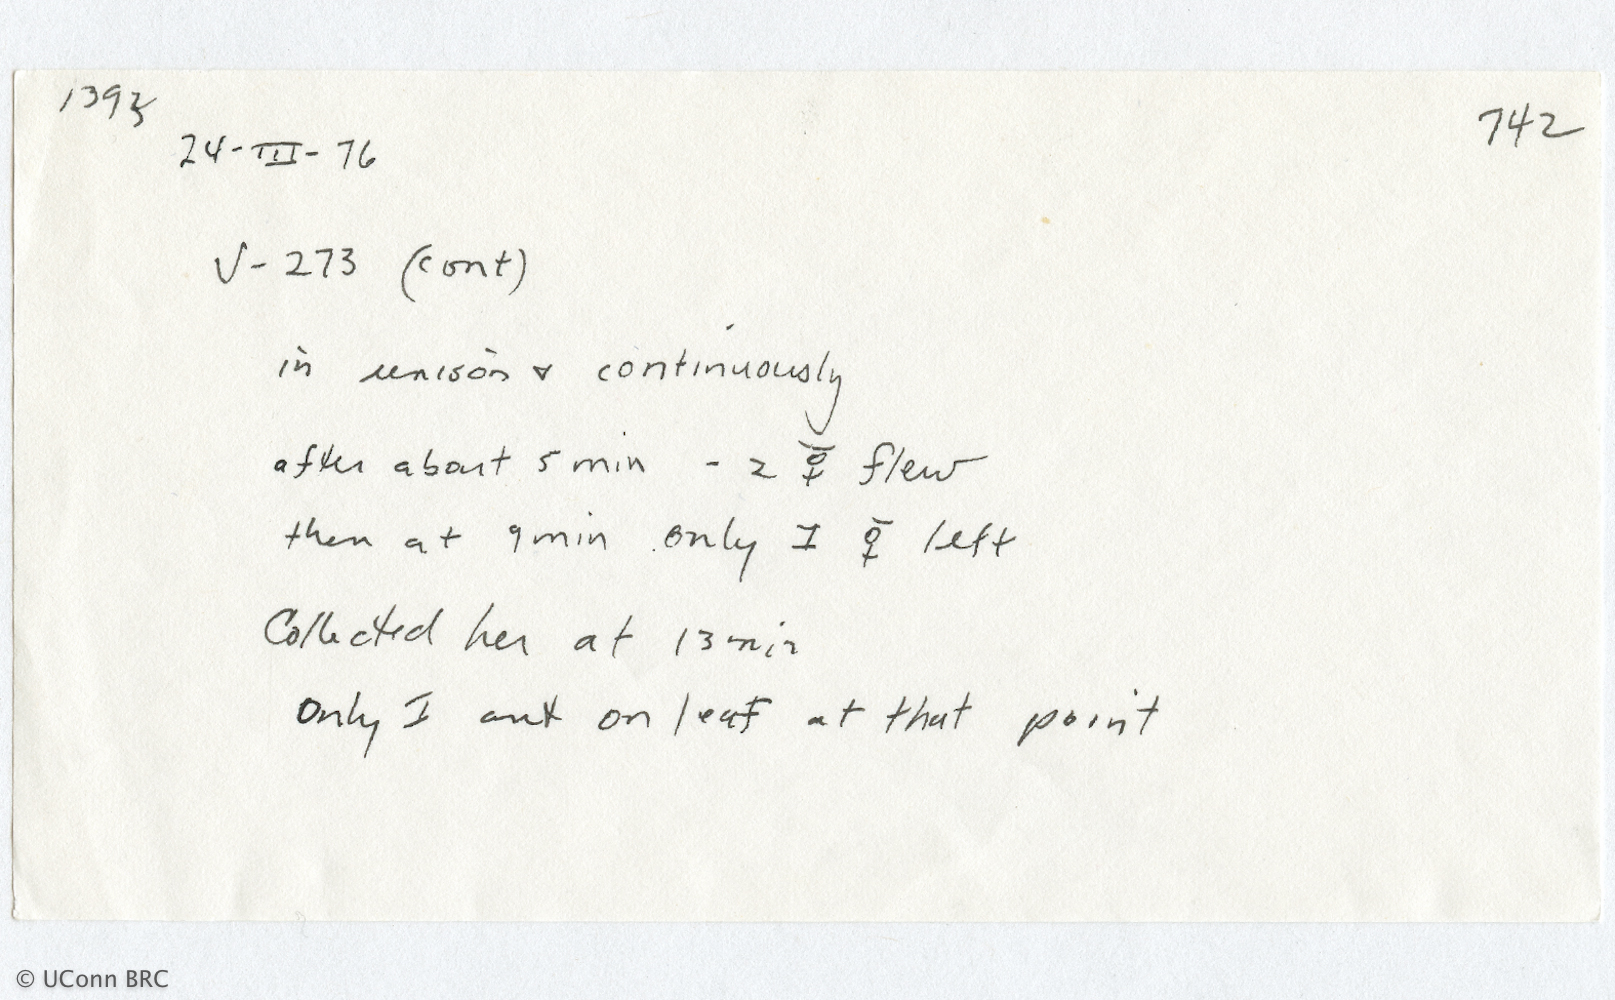 139
742
24-III-76
V-273 (cont)
in unison & continuously
after about 5 min - 2 ♀ flew
then at 9 min only I ♀ left
Collected her at 13 min
only I ant on leaf at that point
© UConn BRC